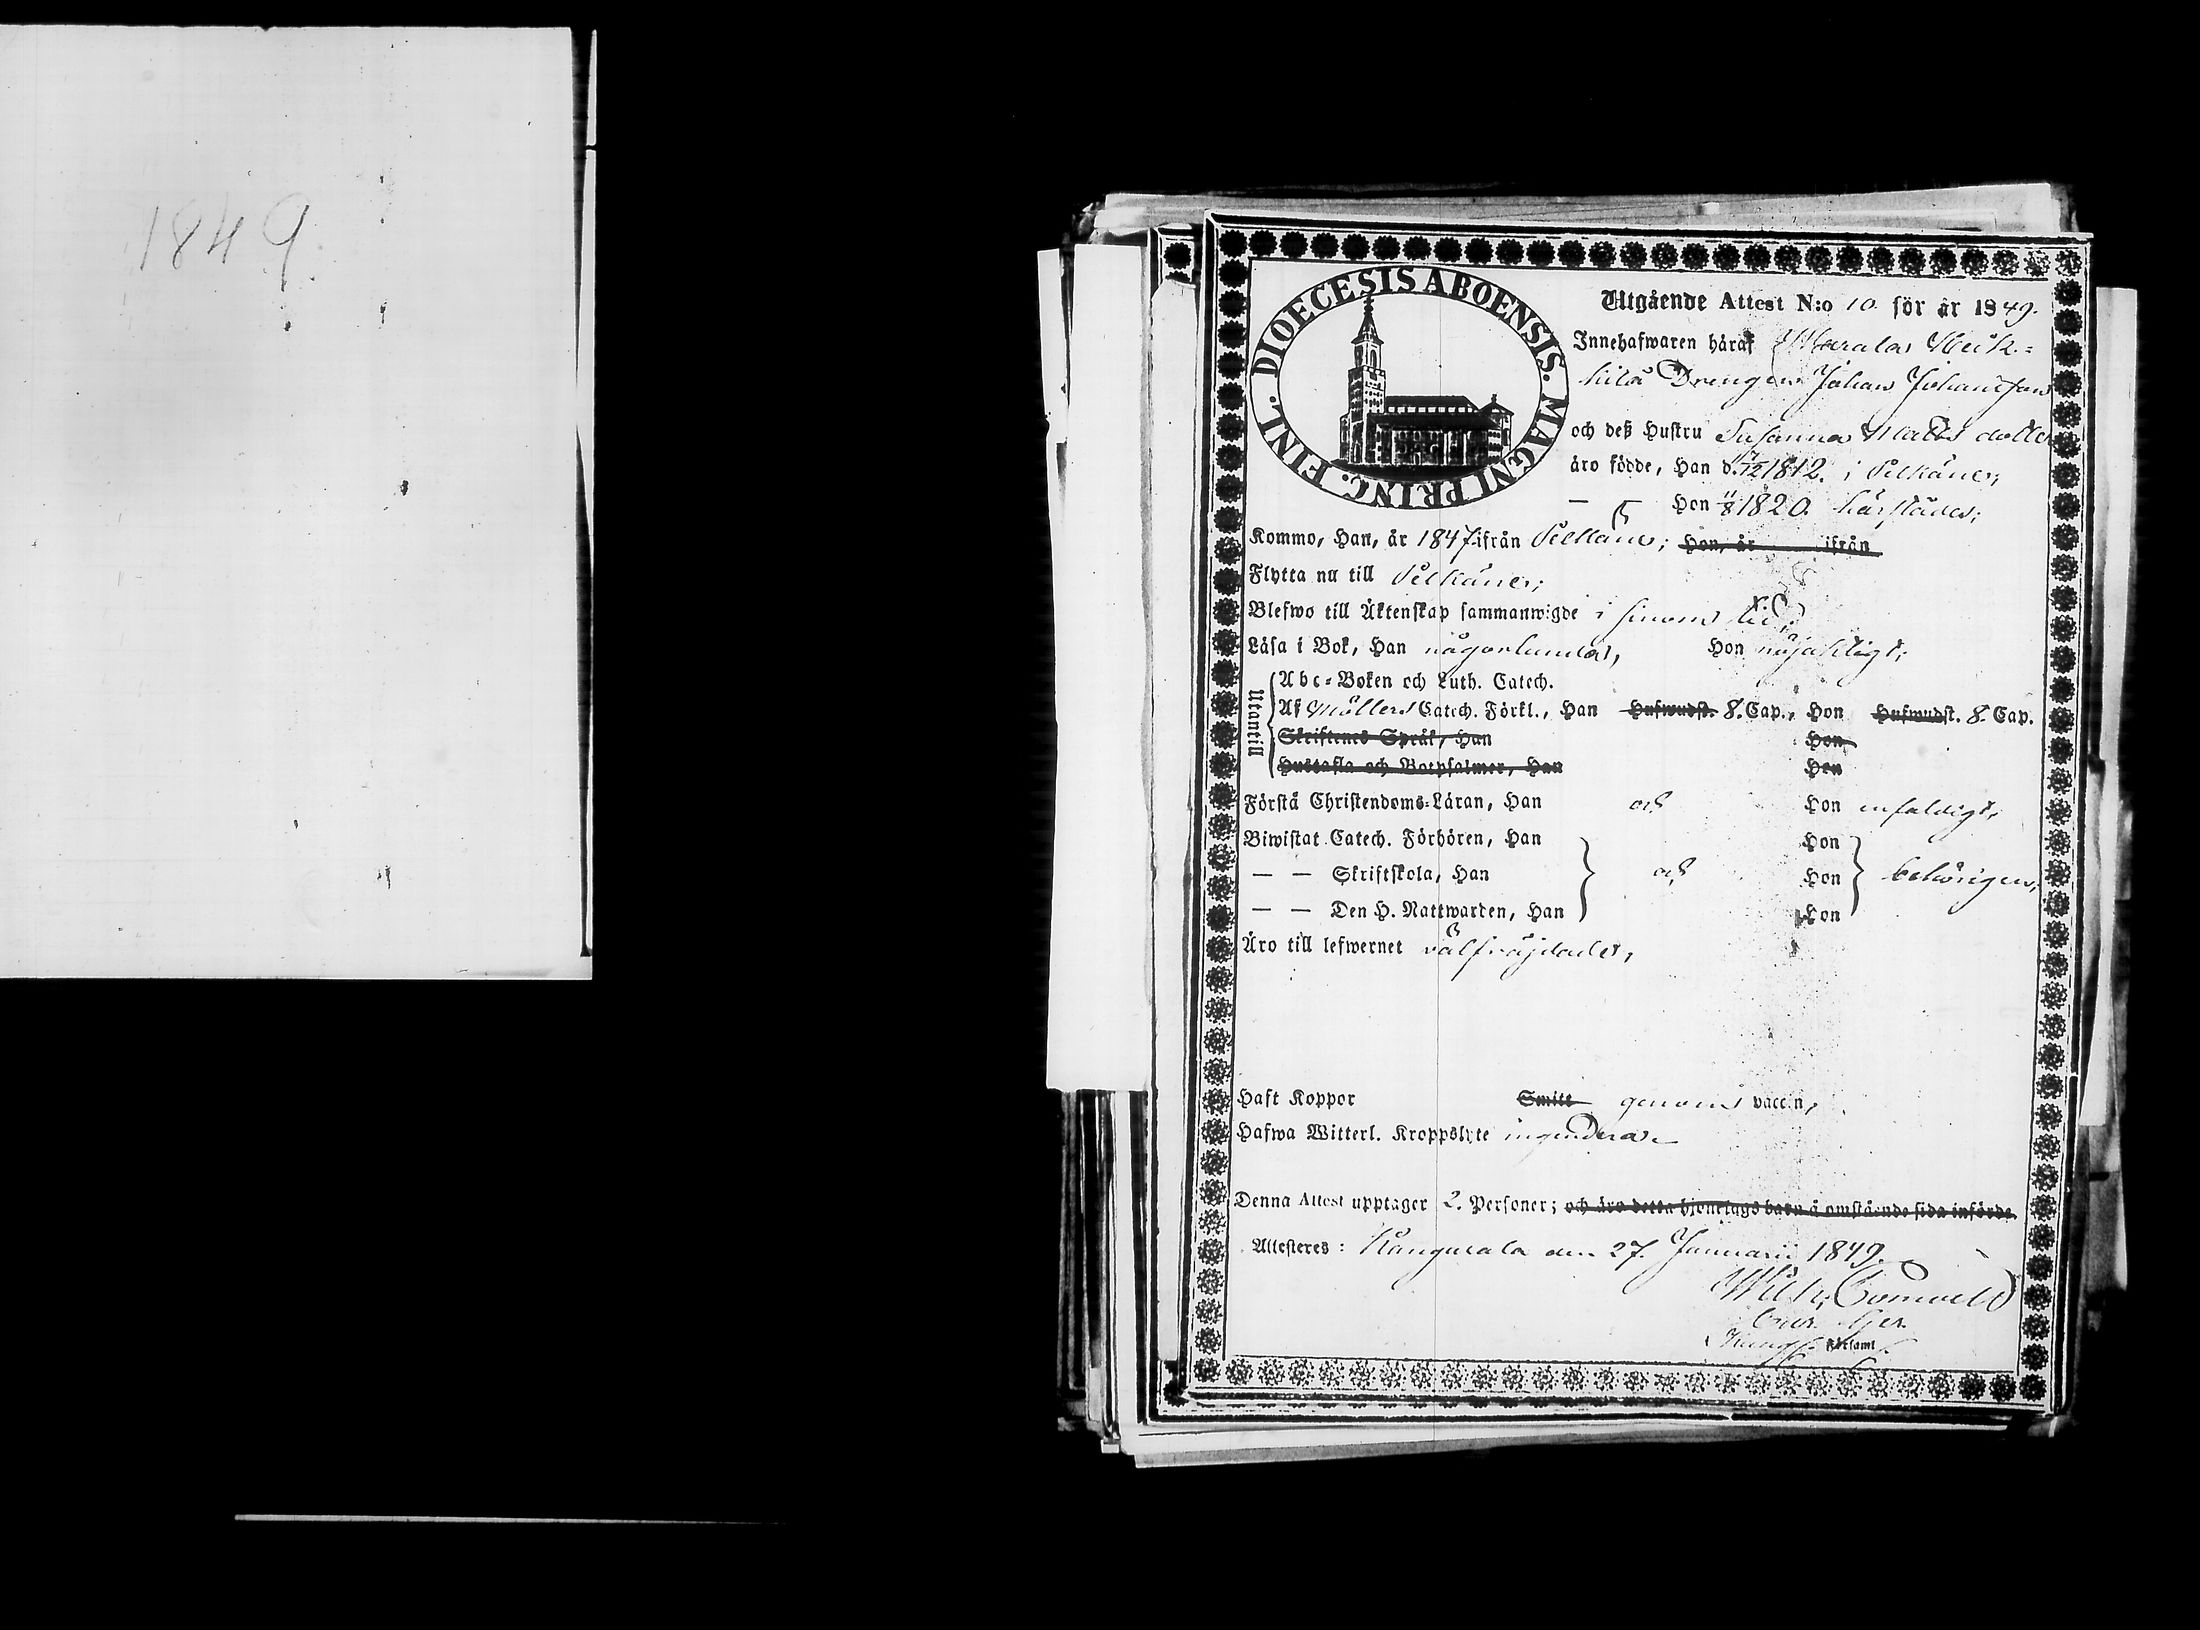 1849
DIOECESIS ABOENSIS. MAGNI PRINC. FINL.
Utgående Attest N:o 10 för år 1849.
Innehafwaren häraf Marala Heik=
kilä Drengen Johan Johansson
och deß Hustru Susanna Matts dotter
äro födde, Han d. /12 1812. i Pelkäne;
— Hon 11/8 1820. härstädes;
Kommo, Han, år 1847 ifrån Pelkäne; Hon, år ifrån
Flytta nu till Pelkäne;
Blefwo till Äktenskap sammanwigde i sinom tid;
Läsa i Bok, Han någorlunda, Hon nöjaktigt;
Utantill
Abc-Boken och Luth. Catech.
Af Möllers Catech. Förkl., Han Hufwudst. 8. Cap., Hon Hufwudst. 8. Cap.
Skriftenes Språk, Han Hon
Hustafla och Botpsalmer, Han Hon
Förstå Christendoms-Läran, Han och Hon enfaldigt,
Biwistat Catech. Förhören, Han Hon
— — Skriftskola, Han och Hon behörigen,
— — Den H. Nattwarden, Han Hon
Äro till lefwernet välfräjdade,
Haft Koppor Smitt genom vaccin,
Hafwa Witterl. Kroppslyte ingendera.
Denna Attest upptager 2. Personer; och äro detta hjonelags barn å omstående sida införde.
Attesteres: Kangasala den 27. Januarii 1849.
Förfamt